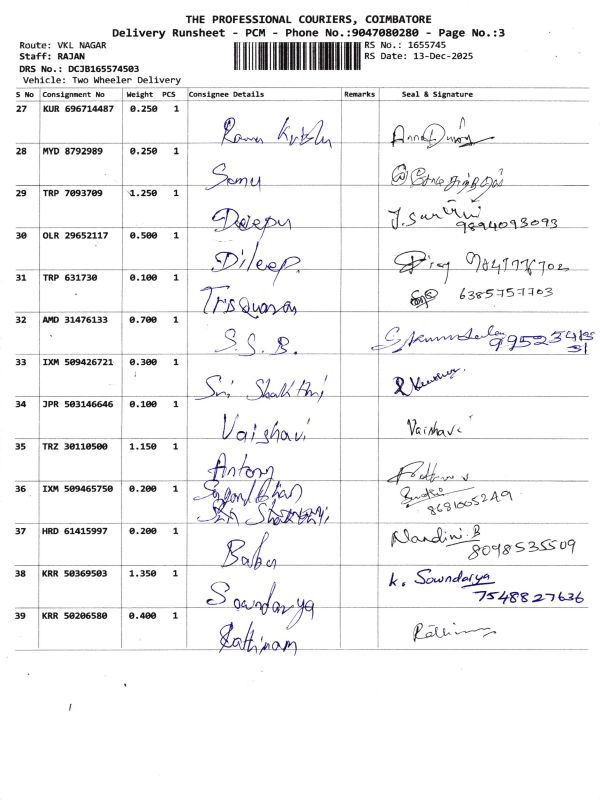 THE PROFESSIONAL COURIERS, COIMBATORE
Delivery Runsheet - PCM - Phone No.:9047080280 - Page No.:3
Route: VKL NAGAR RS No.: 1655745
Staff: RAJAN RS Date: 13-Dec-2025
DRS No.: DCJB165574503
Vehicle: Two Wheeler Delivery
S No Consignment No Weight PCS Consignee Details Remarks Seal & Signature
27 KUR 696714487 0.250 1
28 MYD 8792989 0.250 1
Somu
29 TRP 7093709 1.250 1
Deepu
9894093093
30 OLR 29652117 0.500 1
Dileep.
31 TRP 631730 0.100 1
6385757703
32 AMD 31476133 0.700 1
S.S.B.
33 IXM 509426721 0.300 1
Sri Shakthi
34 JPR 503146646 0.100 1
Vaishavi Vaishavi
35 TRZ 30110500 1.150 1
Antony
36 IXM 509465750 0.200 1
8681005249
37 HRD 61415997 0.200 1
Nandini.B
Babu 8098535509
38 KRR 50369503 1.350 1
K. Soundarya
Soundarya 7548827636
39 KRR 50206580 0.400 1
Rathinam